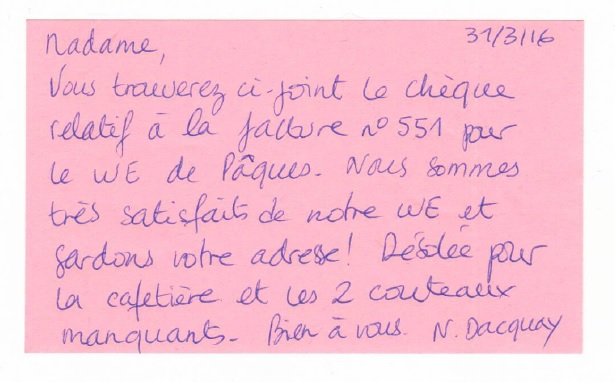 Madame, 31/3/16
Vous trouverez ci-joint le chèque
relatif à la facture n° 551 pour
le WE de Pâques. Nous sommes
très satisfaits de notre WE et
gardons votre adresse! Désolée pour
la cafetière et les 2 couteaux
manquants. Bien à vous. N. Dacquay